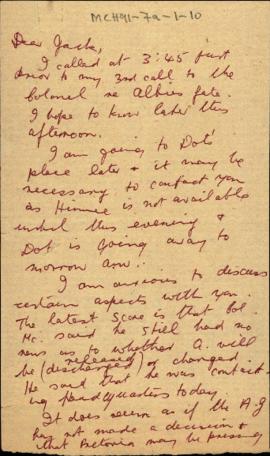 MCH91-7a-1-10
Dear Jack,
I called at 3:45 just
prior to my 3rd call to the
Colonel re Albies fate.
I hope to know later this
afternoon.
I am going to Dot's
place later + it may be
necessary to contact you
as Himie is not available
until this evening +
Dot is going away to
morrow am.
I am anxious to discuss
certain aspects with you.
The latest score is that Col.
Mc. said he still had no
news as to whether A. will
be (discharged) or charged.
released
He said that he was contact-
ing headquarters today.
It does seem as if the A.G
has not made a decision +
that Pretoria may be pressing